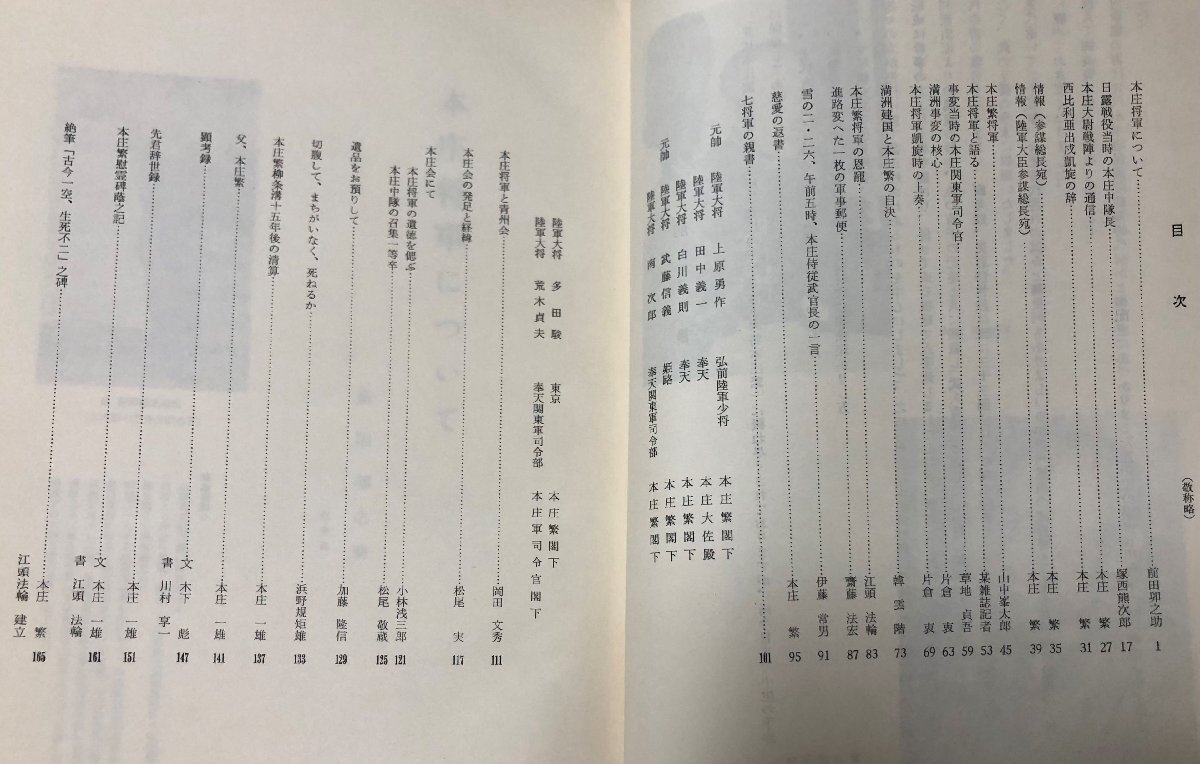 目次
(敬称略)
本庄将軍について……前田卯之助 1
日露戦役当時の本庄中隊長……塚西熊次郎 17
本庄大尉戦陣よりの通信……本庄 繁 27
西比利亜出戊凱旋の辞……本庄 繁 31
情報(参謀総長宛)……本庄 繁 35
情報(陸軍大臣参謀総長宛)……本庄 繁 39
本庄繁将軍……山中峯太郎 45
本庄将軍と語る……某雑誌記者 53
事変当時の本庄関東軍司令官……草地 貞吾 59
満洲事変の核心……片倉 衷 63
本庄将軍凱旋時の上奏……片倉 衷 69
満洲建国と本庄繁の自決……韓 雲階 73
本庄繁将軍の恩寵……江頭 法輪 83
進路変へた一枚の軍事郵便……齋藤 法宏 87
雪の二・二六、午前五時、本庄侍従武官長の一言……伊藤 常男 91
慈愛の返書……本庄 繁 95
七将軍の親書……101
元帥 陸軍大将 上原勇作 弘前陸軍少将 本庄繁閣下
陸軍大将 田中義一 奉天 本庄大佐殿
陸軍大将 白川義則 奉天 本庄繁閣下
元帥 陸軍大将 武藤信義 姫路 本庄繁閣下
陸軍大将 南次郎 奉天関東軍司令部 本庄繁閣下
陸軍大将 多田駿 東京 本庄繁閣下
陸軍大将 荒木貞夫 奉天関東軍司令部 本庄軍司令官閣下
本庄将軍と青州会……岡田 文秀 111
本庄会の発足と経緯……松尾 実 117
本庄会にて
本庄将軍の遺徳を偲ぶ……小林浅三郎 121
本庄中隊の召集一等卒……松尾 敬蔵 125
遺品をお預りして……加藤 隆信 129
切腹して、まちがいなく、死ねるか……浜野規矩雄 133
本庄繁柳条溝十五年後の清算……本庄 一雄 137
父、本庄繁……本庄 一雄 141
顕考録……文 木下 彪 147
先君辞世録……書 川村 享一
本庄繁慰霊碑蔭之記……本庄 一雄 151
文 本庄 一雄 161
書 江頭 法輪
絶筆「古今一空、生死不二」之碑……本庄 繁 165
江頭法輪 建立